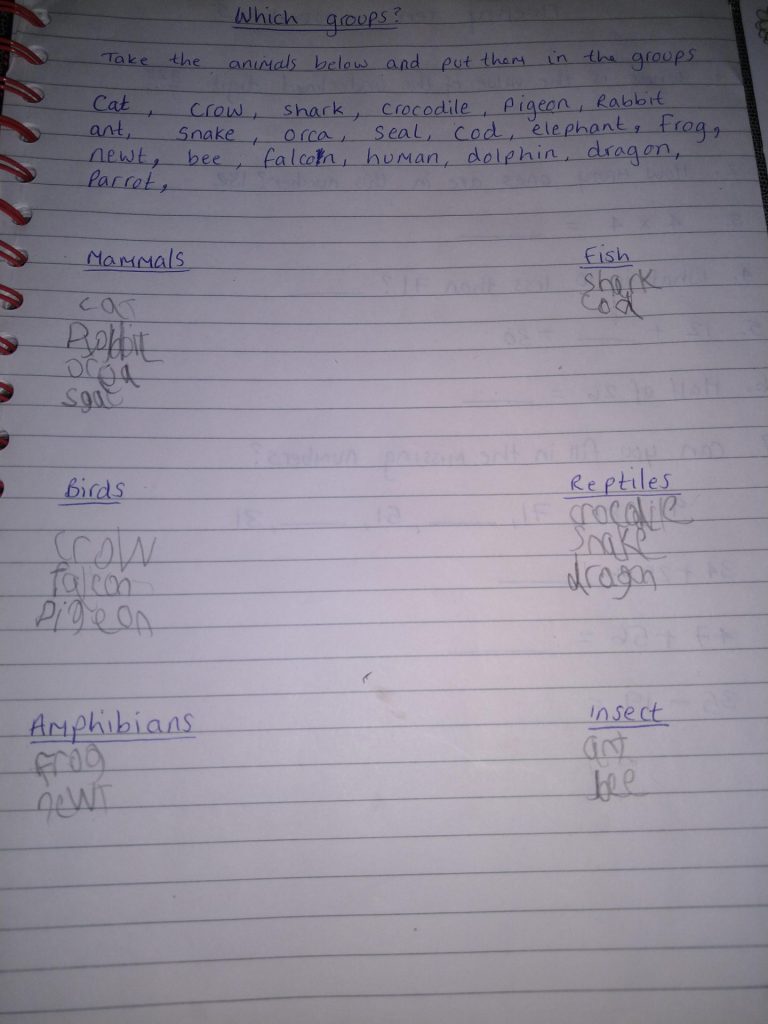 Which groups?
Take the animals below and put them in the groups
Cat, crow, shark, crocodile, Pigeon, Rabbit
ant, snake, orca, seal, cod, elephant, Frog,
newt, bee, falcon, human, dolphin, dragon,
Parrot,
Mammals
cat
Rabbit
orca
seal
Fish
shark
cod
Birds
crow
falcon
Pigeon
Reptiles
crocodile
snake
dragon
Amphibians
Frog
newt
insect
ant
bee